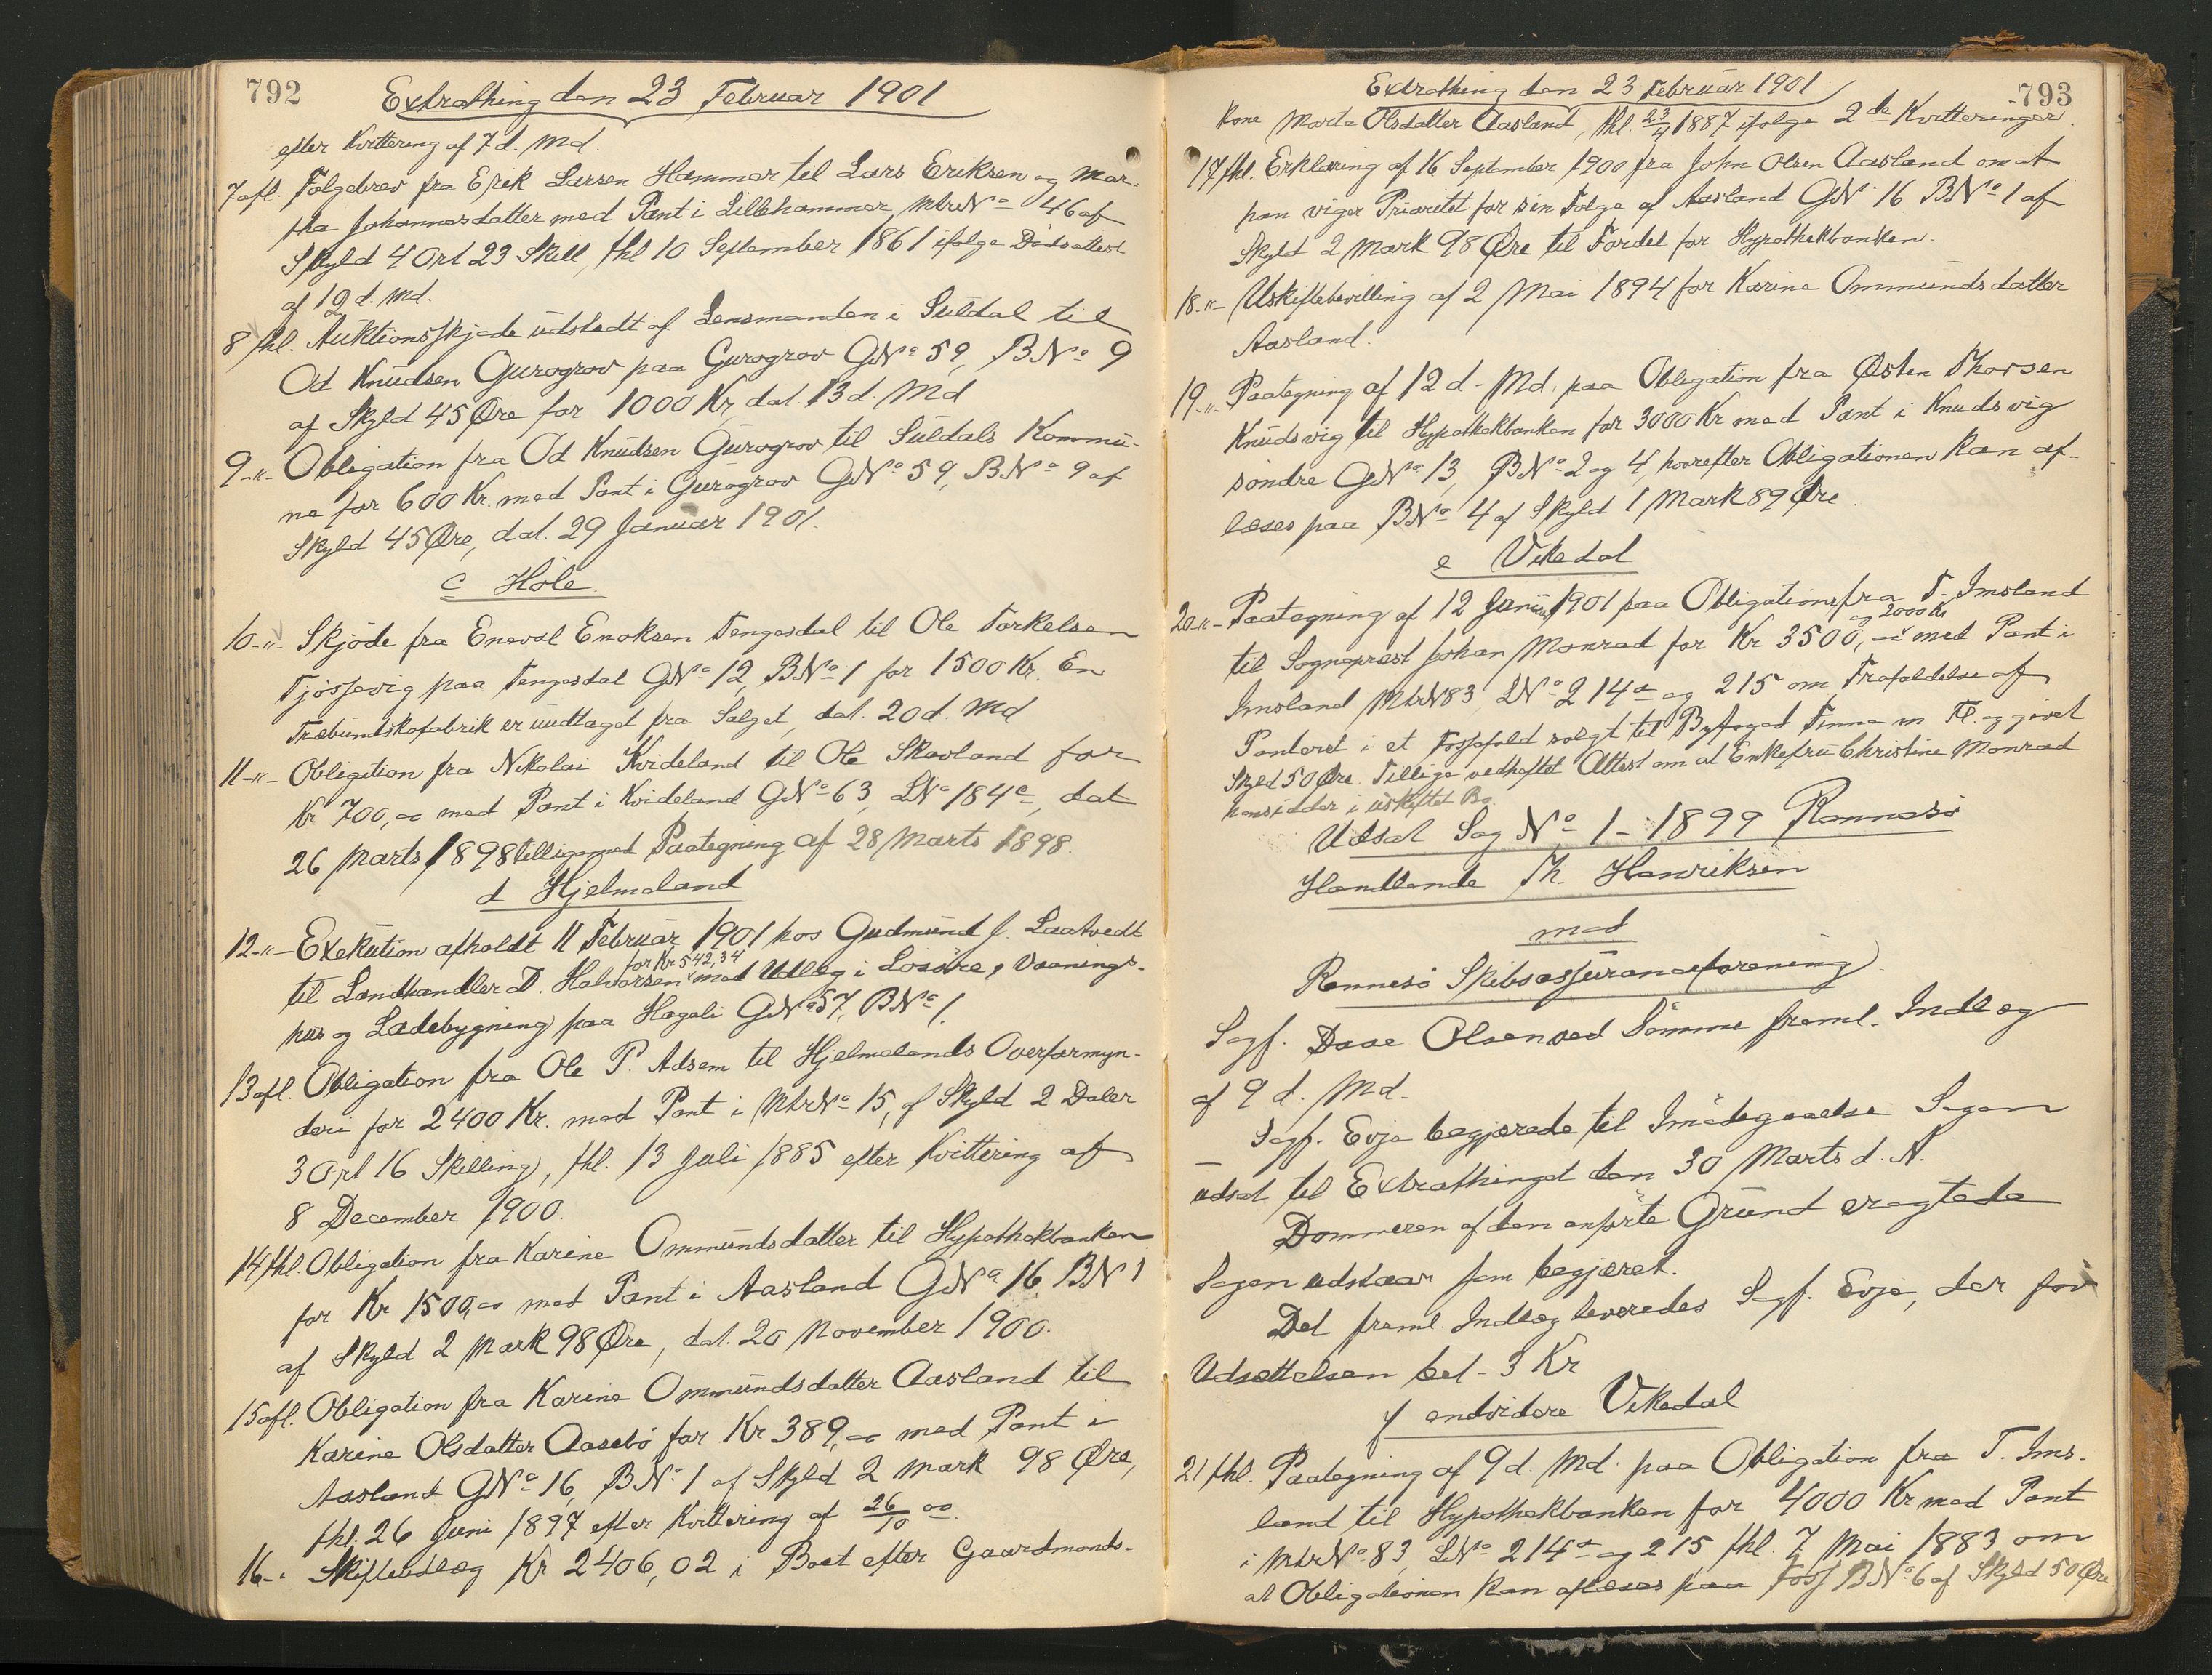 792
Extrathing den 23 Februar 1901
efter Kvittering af 7 d. Md.
7 afl. Følgebrev fra Erik Larsen Hammer til Lars Eriksen og Mar-
tha Johannesdatter med Pant i Lillehammer, MtrNo 46 af
Skyld 4 Ort 23 Skill, thl 10 September 1861 ifølge Dødsattest
af 12 d. Md.
8 thl. Auktionsskjøde udstedt af Lensmanden i Suldal til
Od Knudsen Gurogrov paa Gurogrov GNo 59, BNo 9
af Skyld 45 Øre for 1000 Kr, dat. 13 d. Md
9 -"- Obligation fra Od Knudsen Gurogrov til Suldals Kommu-
ne for 600 Kr. med Pant i Gurogrov GNo 59, BNo 9 af
Skyld 45 Øre, dat. 29 Januar 1901.
c Høle
10 -"- Skjøde fra Eneval Enoksen Tengesdal til Ole Torkelsen
Tjøssevig paa Tengesdal GNo 12, BNo 1 for 1500 Kr. En
Træbundskofabrik er undtaget fra Salget, dat. 20 d. Md
11 -"- Obligation fra Nikolai Kvideland til Ole Skavland for
Kr 700,00 med Pant i Kvideland GNo 63, LNo 184c, dat
26 Marts 1898 tilligemed Paategning af 28 Marts 1898.
d Hjelmeland
12 -"- Exekution afholdt 11 Februar 1901 hos Gudmund J. Laatvedt
for Kr 542,34
til Landhandler D. Halvorsen med Udlæg i Losøre, Vaanings-
hus og Ladebygning paa Hagali GNo 57, BNo 1.
13 afl. Obligation fra Ole P. Adsem til Hjelmelands Overformyn-
deri for 2400 Kr. med Pant i MtrNo 15, af Skyld 2 Daler
3 Ort 16 Skilling, thl. 13 Juli 1885 efter Kvittering af
8 December 1900.
14 thl. Obligation fra Karine Ommundsdatter til Hypothekbanken
for Kr 1500,00 med Pant i Aasland GNo 16, BN 1
af Skyld 2 Mark 98 Øre, dat. 20 November 1900.
15 afl. Obligation fra Karine Ommundsdatter Aasland til
Karine Olsdatter Aasebø for Kr 389,00 med Pant i
Aasland GNo 16, BNo 1 af Skyld 2 Mark 98 Øre,
thl. 26 Juni 1897 efter Kvittering af 26/10 00.
16 -"- Skifteudlæg Kr 2406,02 i Boet efter Gaardmands-
793
Extrathing den 23 Februar 1901
kone Marta Olsdatter Aasland, thl. 23/4 1887 ifølge 2de Kvitteringer.
17 thl. Erklæring af 16 September 1900 fra John Olsen Aasland om at
han viger Prioritet for sin Følge af Aasland GN 16 BNo 1 af
Skyld 2 Mark 98 Øre til Fordel for Hypothekbanken.
18 -"- Uskiftebevilling af 2 Mai 1894 for Karine Ommundsdatter
Aasland.
19 -"- Paategning af 12 d. Md. paa Obligation fra Østen Thorsen
Knudsvig til Hypothekbanken for 3000 Kr med Pant i Knudsvig
søndre GNo 13, BNo 2 og 4, hvorefter Obligationen kan af-
læses paa BNo 4 af Skyld 1 Mark 89 Øre.
e Vikedal
20 -"- Paategning af 12 1901 paa Obligation fra T. Imsland
og 2000 Kr
til Sogneprest Johan Monrad for Kr 3500, med Pant i
Imsland MtrN 83, LNo 214a og 215 om Frafaldelse af
Panteret i et Fossefald solgt til Byfoged Finne m Fl. og givet
Skyld 50 Øre. Tillige vedheftet Attest om at Enkefru Christine Monrad
hensidder i uskiftet Bo.
Udsat Sag No 1 - 1899 Rennesø
Handlende Th. Henriksen
mod
Rennesø Skibsassuranceforening
Sagf. Daae Olsen ved Sømme freml. Indlæg
af 9 d. Md.
Sagf. Evje begjærede til Imødegaaelse Sagen
udsat til Extrathinget den 30 Marts d. A.
Dommeren af den anførte Grund eragtede
Sagen udstaar som begjæret.
Det freml. Indlæg leveredes Sagf. Evje, der for
Udsættelsen bet. 3 Kr
f endvidere Vikedal
21 thl. Paategning af 9 d. Md. paa Obligation fra T. Ims-
land til Hypothekbanken for 4000 Kr med Pant
i MtrNo 83, LNo 214a og 215 thl. 7 Mai 1883 om
at Obligationen kan aflæses paa Foss BNo 6 af Skyld 50 Øre